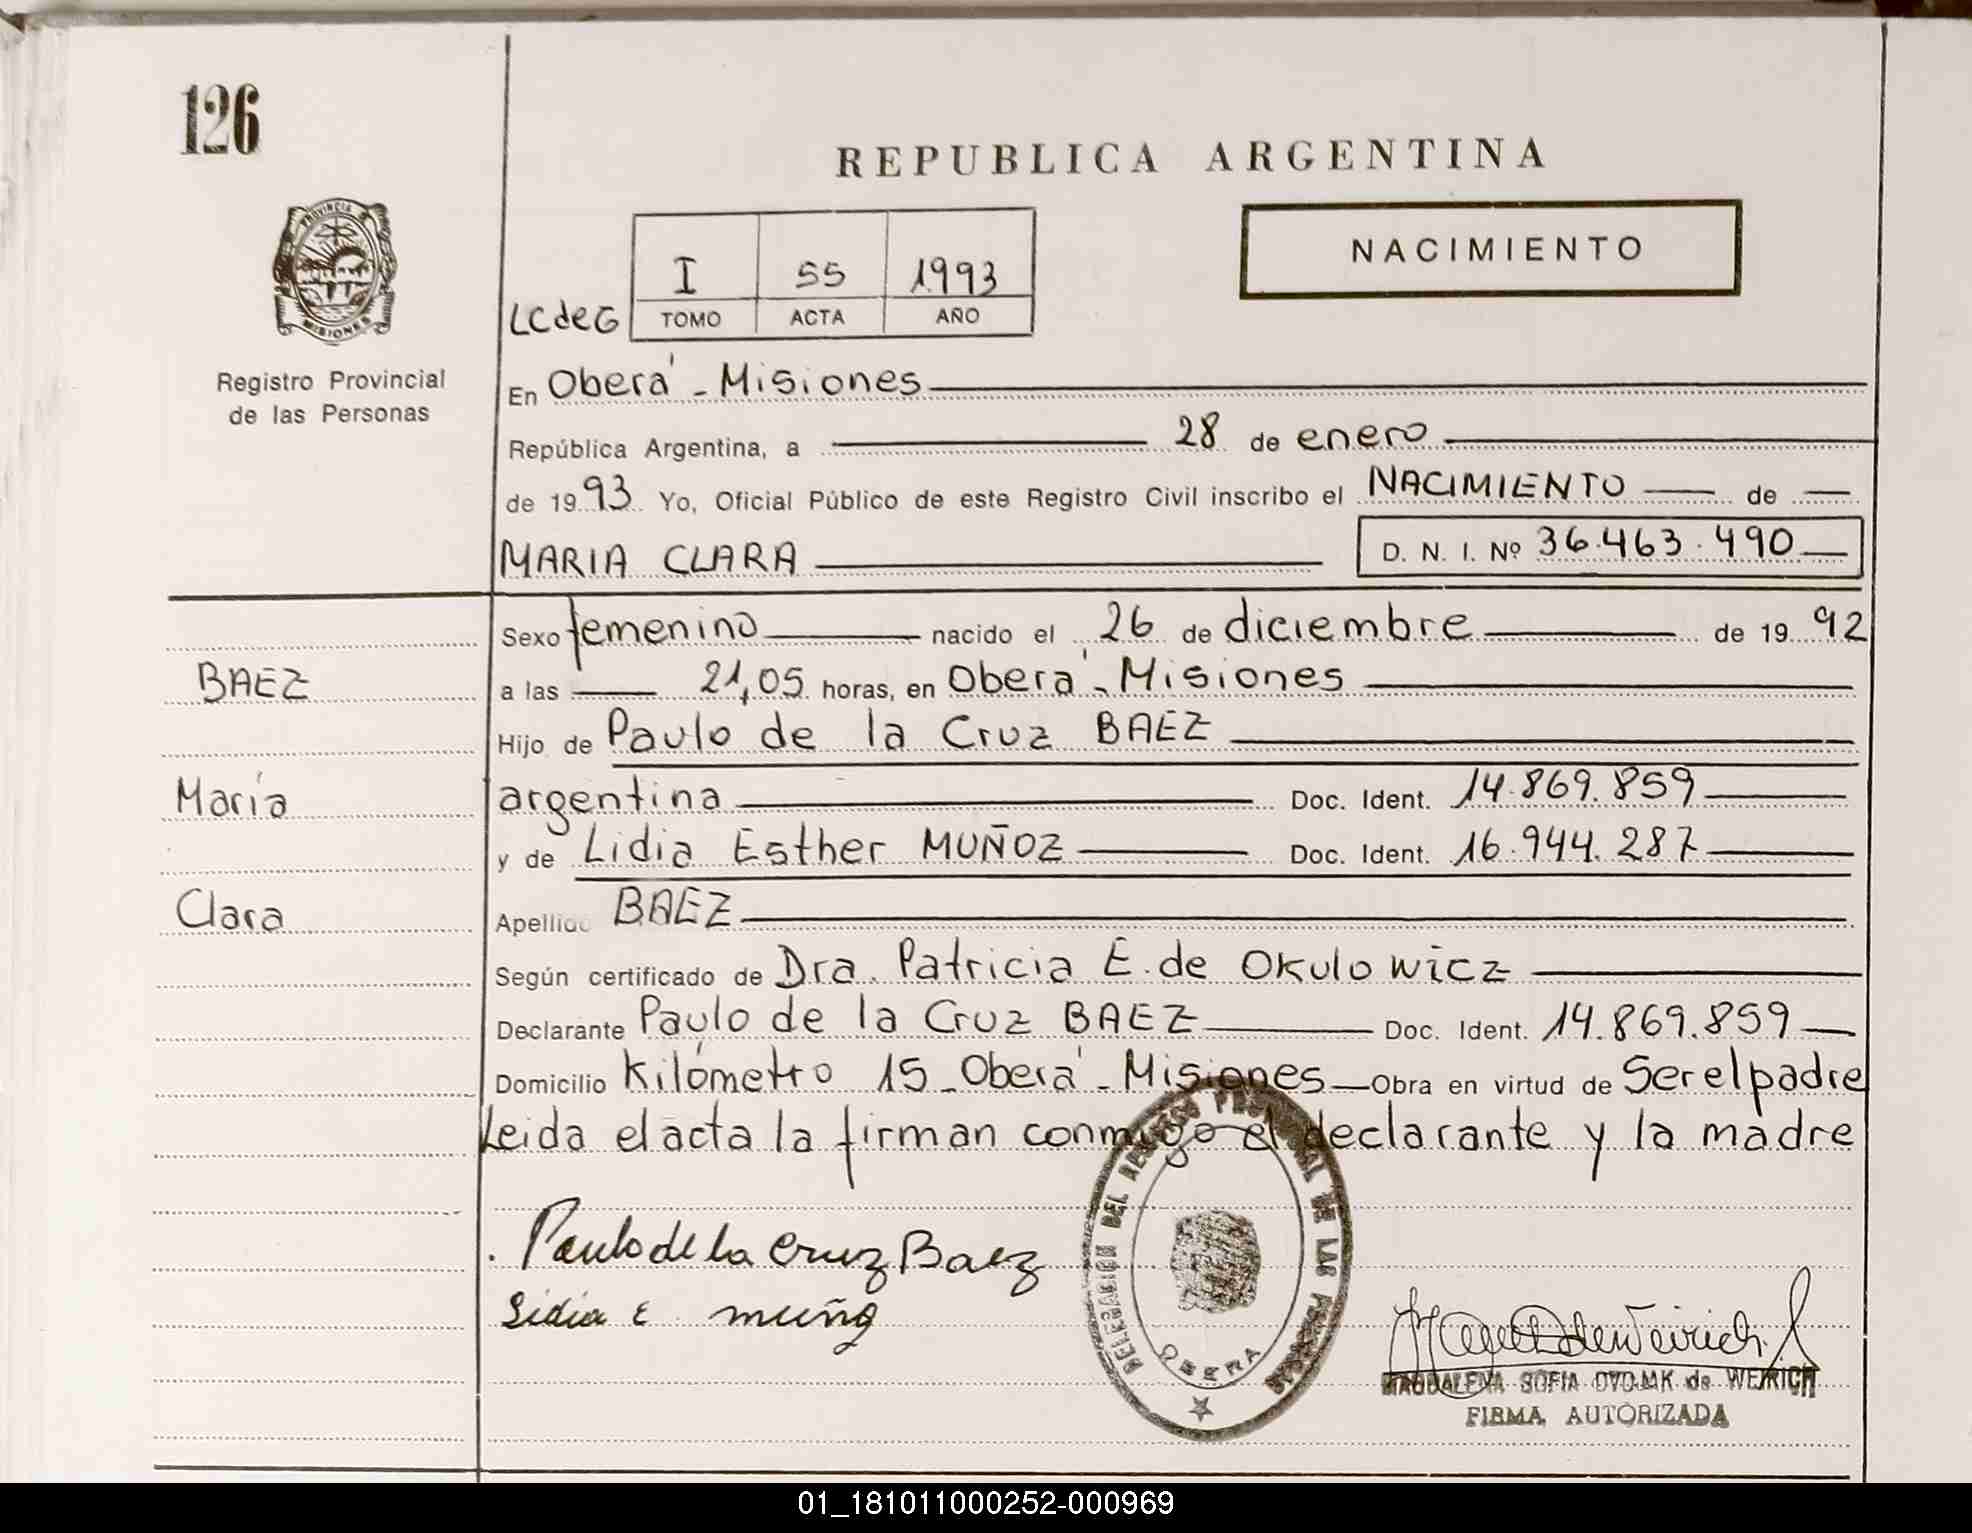 126
REPUBLICA ARGENTINA
PROVINCIA
MISIONES
Registro Provincial
de las Personas
NACIMIENTO
I 55 1993
LCdeG TOMO ACTA AÑO
En Oberá - Misiones
República Argentina, a 28 de enero
de 1993 Yo, Oficial Público de este Registro Civil inscribo el NACIMIENTO de
MARIA CLARA D. N. I. Nº 36.463.490
Sexo femenino nacido el 26 de diciembre de 1992
BAEZ
a las 21,05 horas, en Oberá - Misiones
Hijo de Paulo de la Cruz BAEZ
María
argentina Doc. Ident. 14.869.859
y de Lidia Esther MUÑOZ Doc. Ident. 16.944.287
Clara
Apellido BAEZ
Según certificado de Dra. Patricia E. de Okulowicz
Declarante Paulo de la Cruz BAEZ Doc. Ident. 14.869.859
Domicilio Kilómetro 15 - Oberá - Misiones Obra en virtud de Ser el padre
Leida el acta la firman conmigo el declarante y la madre
Paulo de la Cruz Baez
Lidia E. Muñoz
DEL REGISTRO PROVINCIAL DE LAS PERSONAS
OBERA
MAGDALENA SOFIA de WEIRICH
FIRMA AUTORIZADA
01_181011000252-000969